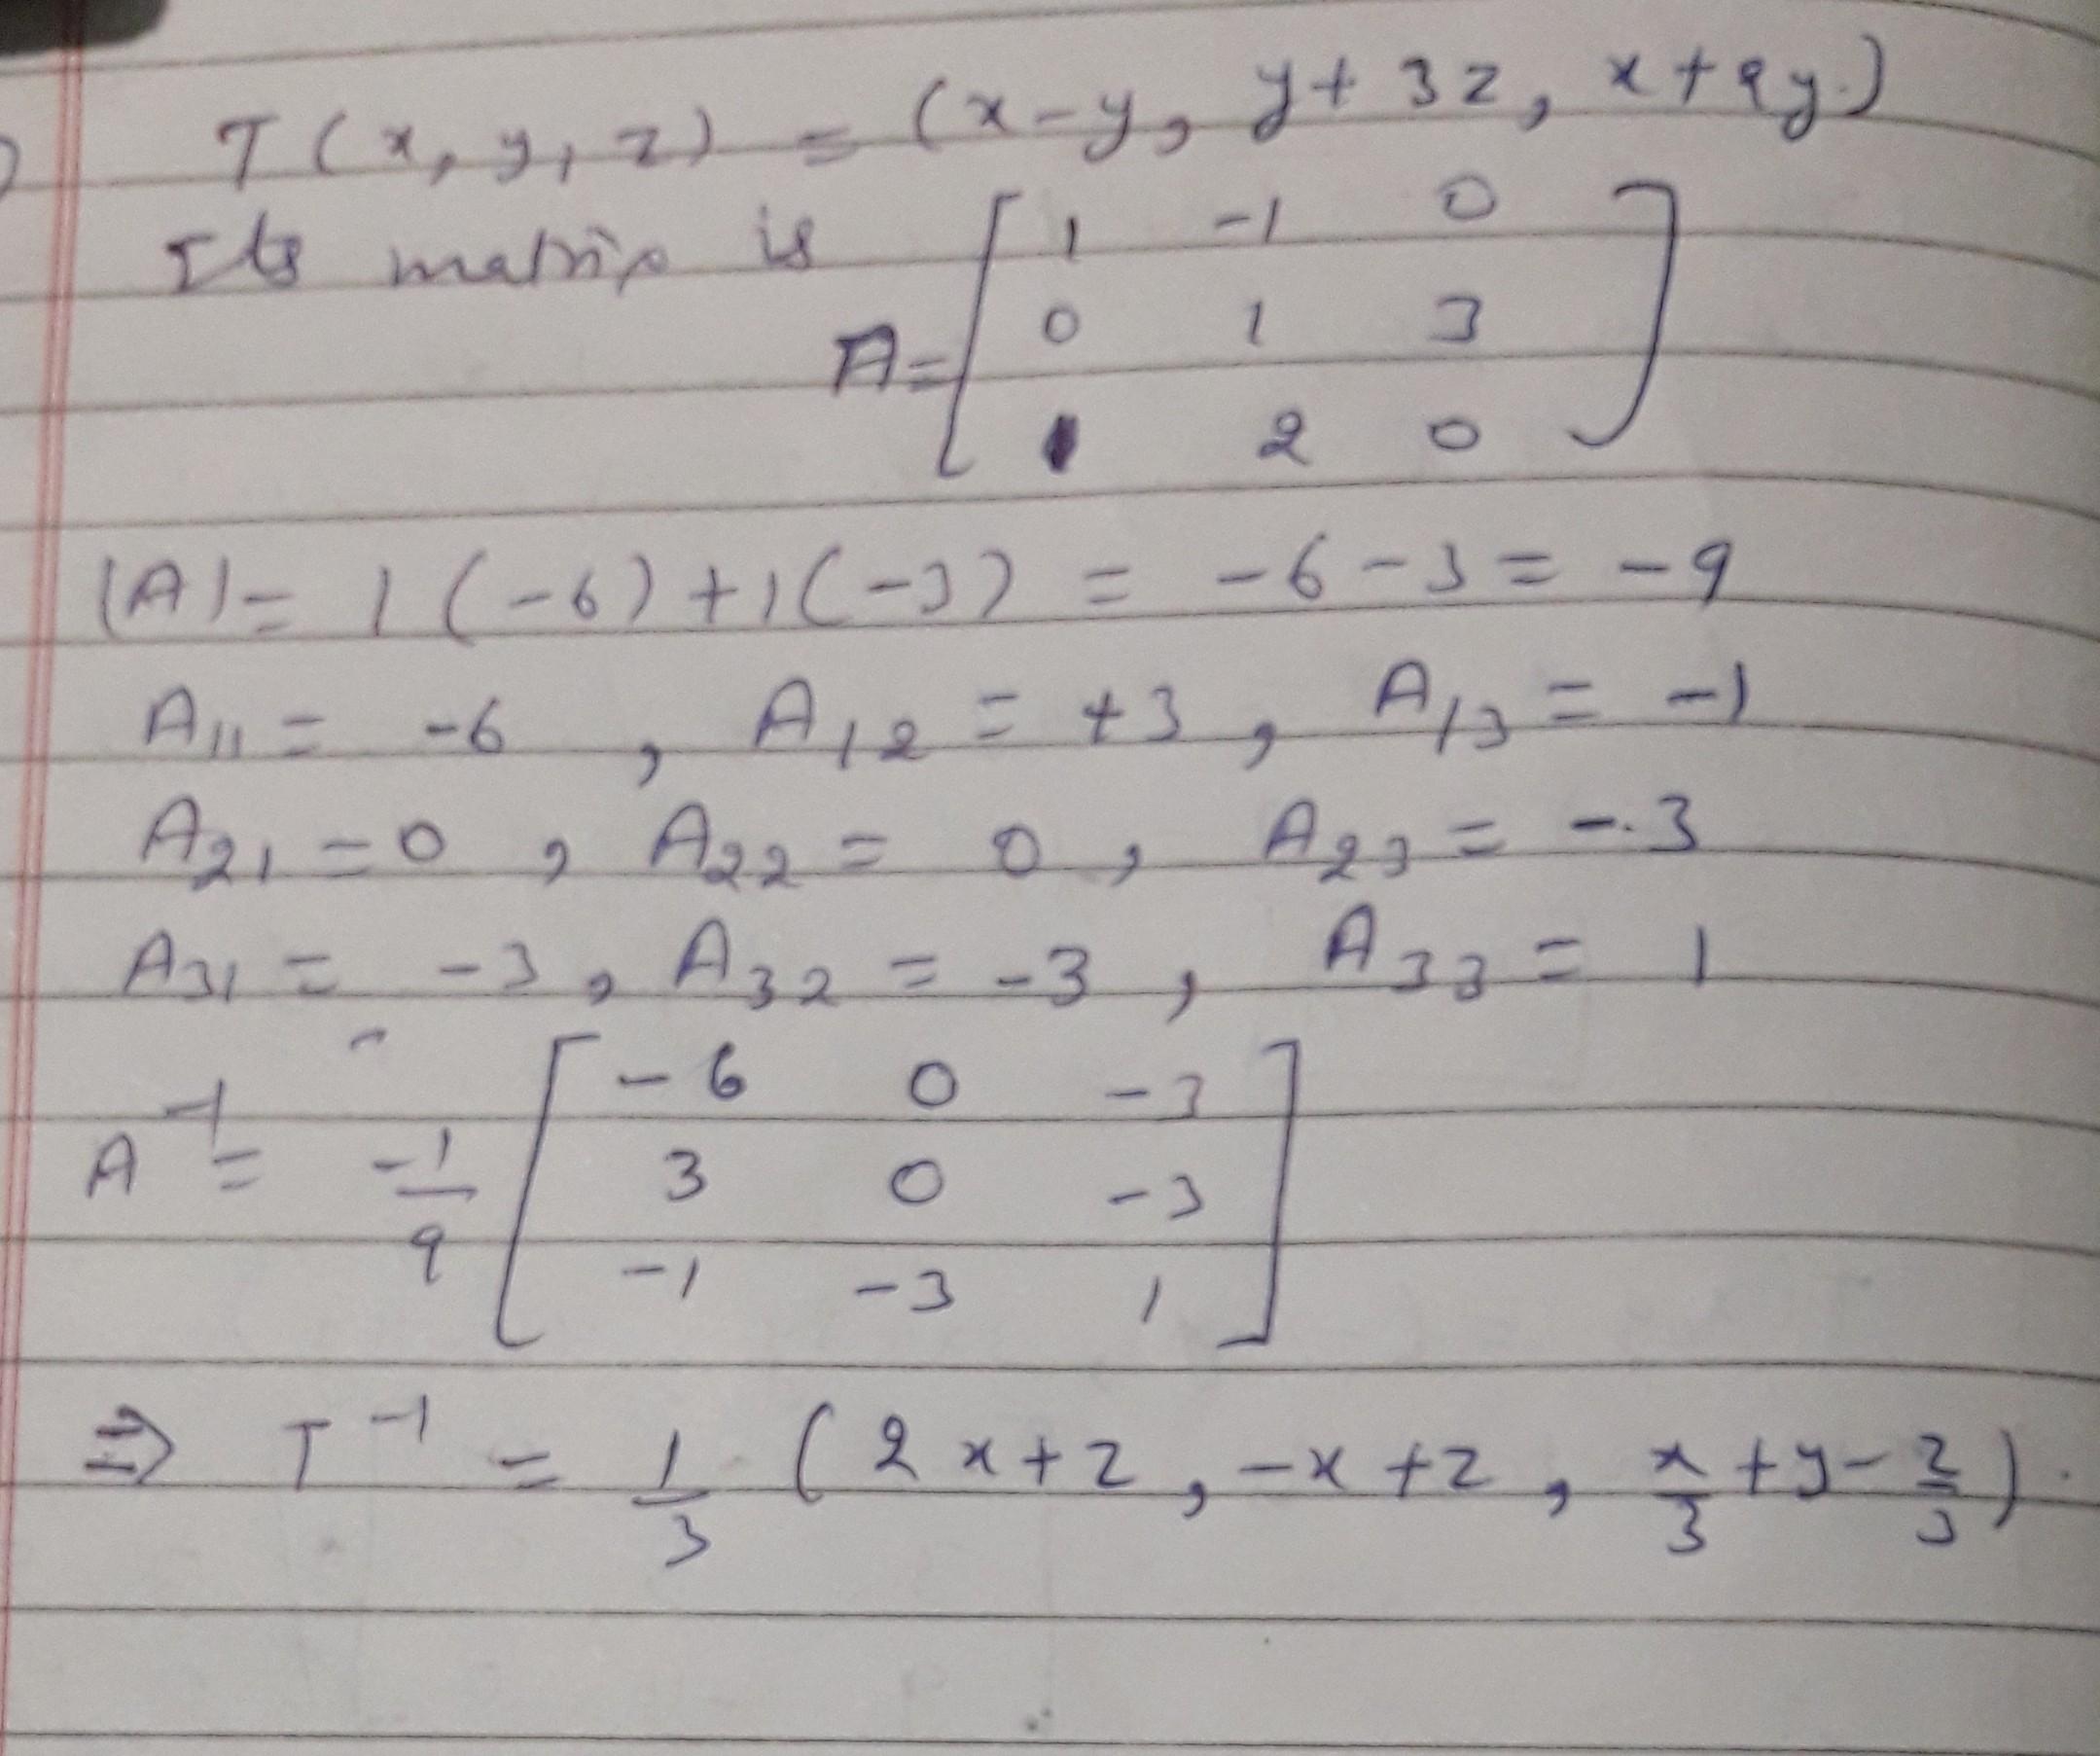 T(x, y, z) = (x-y, y+3z, x+2y.)
Its matrix is
A= [ 1 -1 0
0 1 3
1 2 0 ]
|A|= 1(-6)+1(-3) = -6-3 = -9
A11 = -6 , A12 = +3 , A13 = -1
A21 = 0 , A22 = 0 , A23 = -3
A31 = -3 , A32 = -3 , A33 = 1
A^-1 = -1/9 [ -6 0 -3
3 0 -3
-1 -3 1 ]
⇒ T^-1 = 1/3 (2x+z, -x+z, x/3+y-z/3).